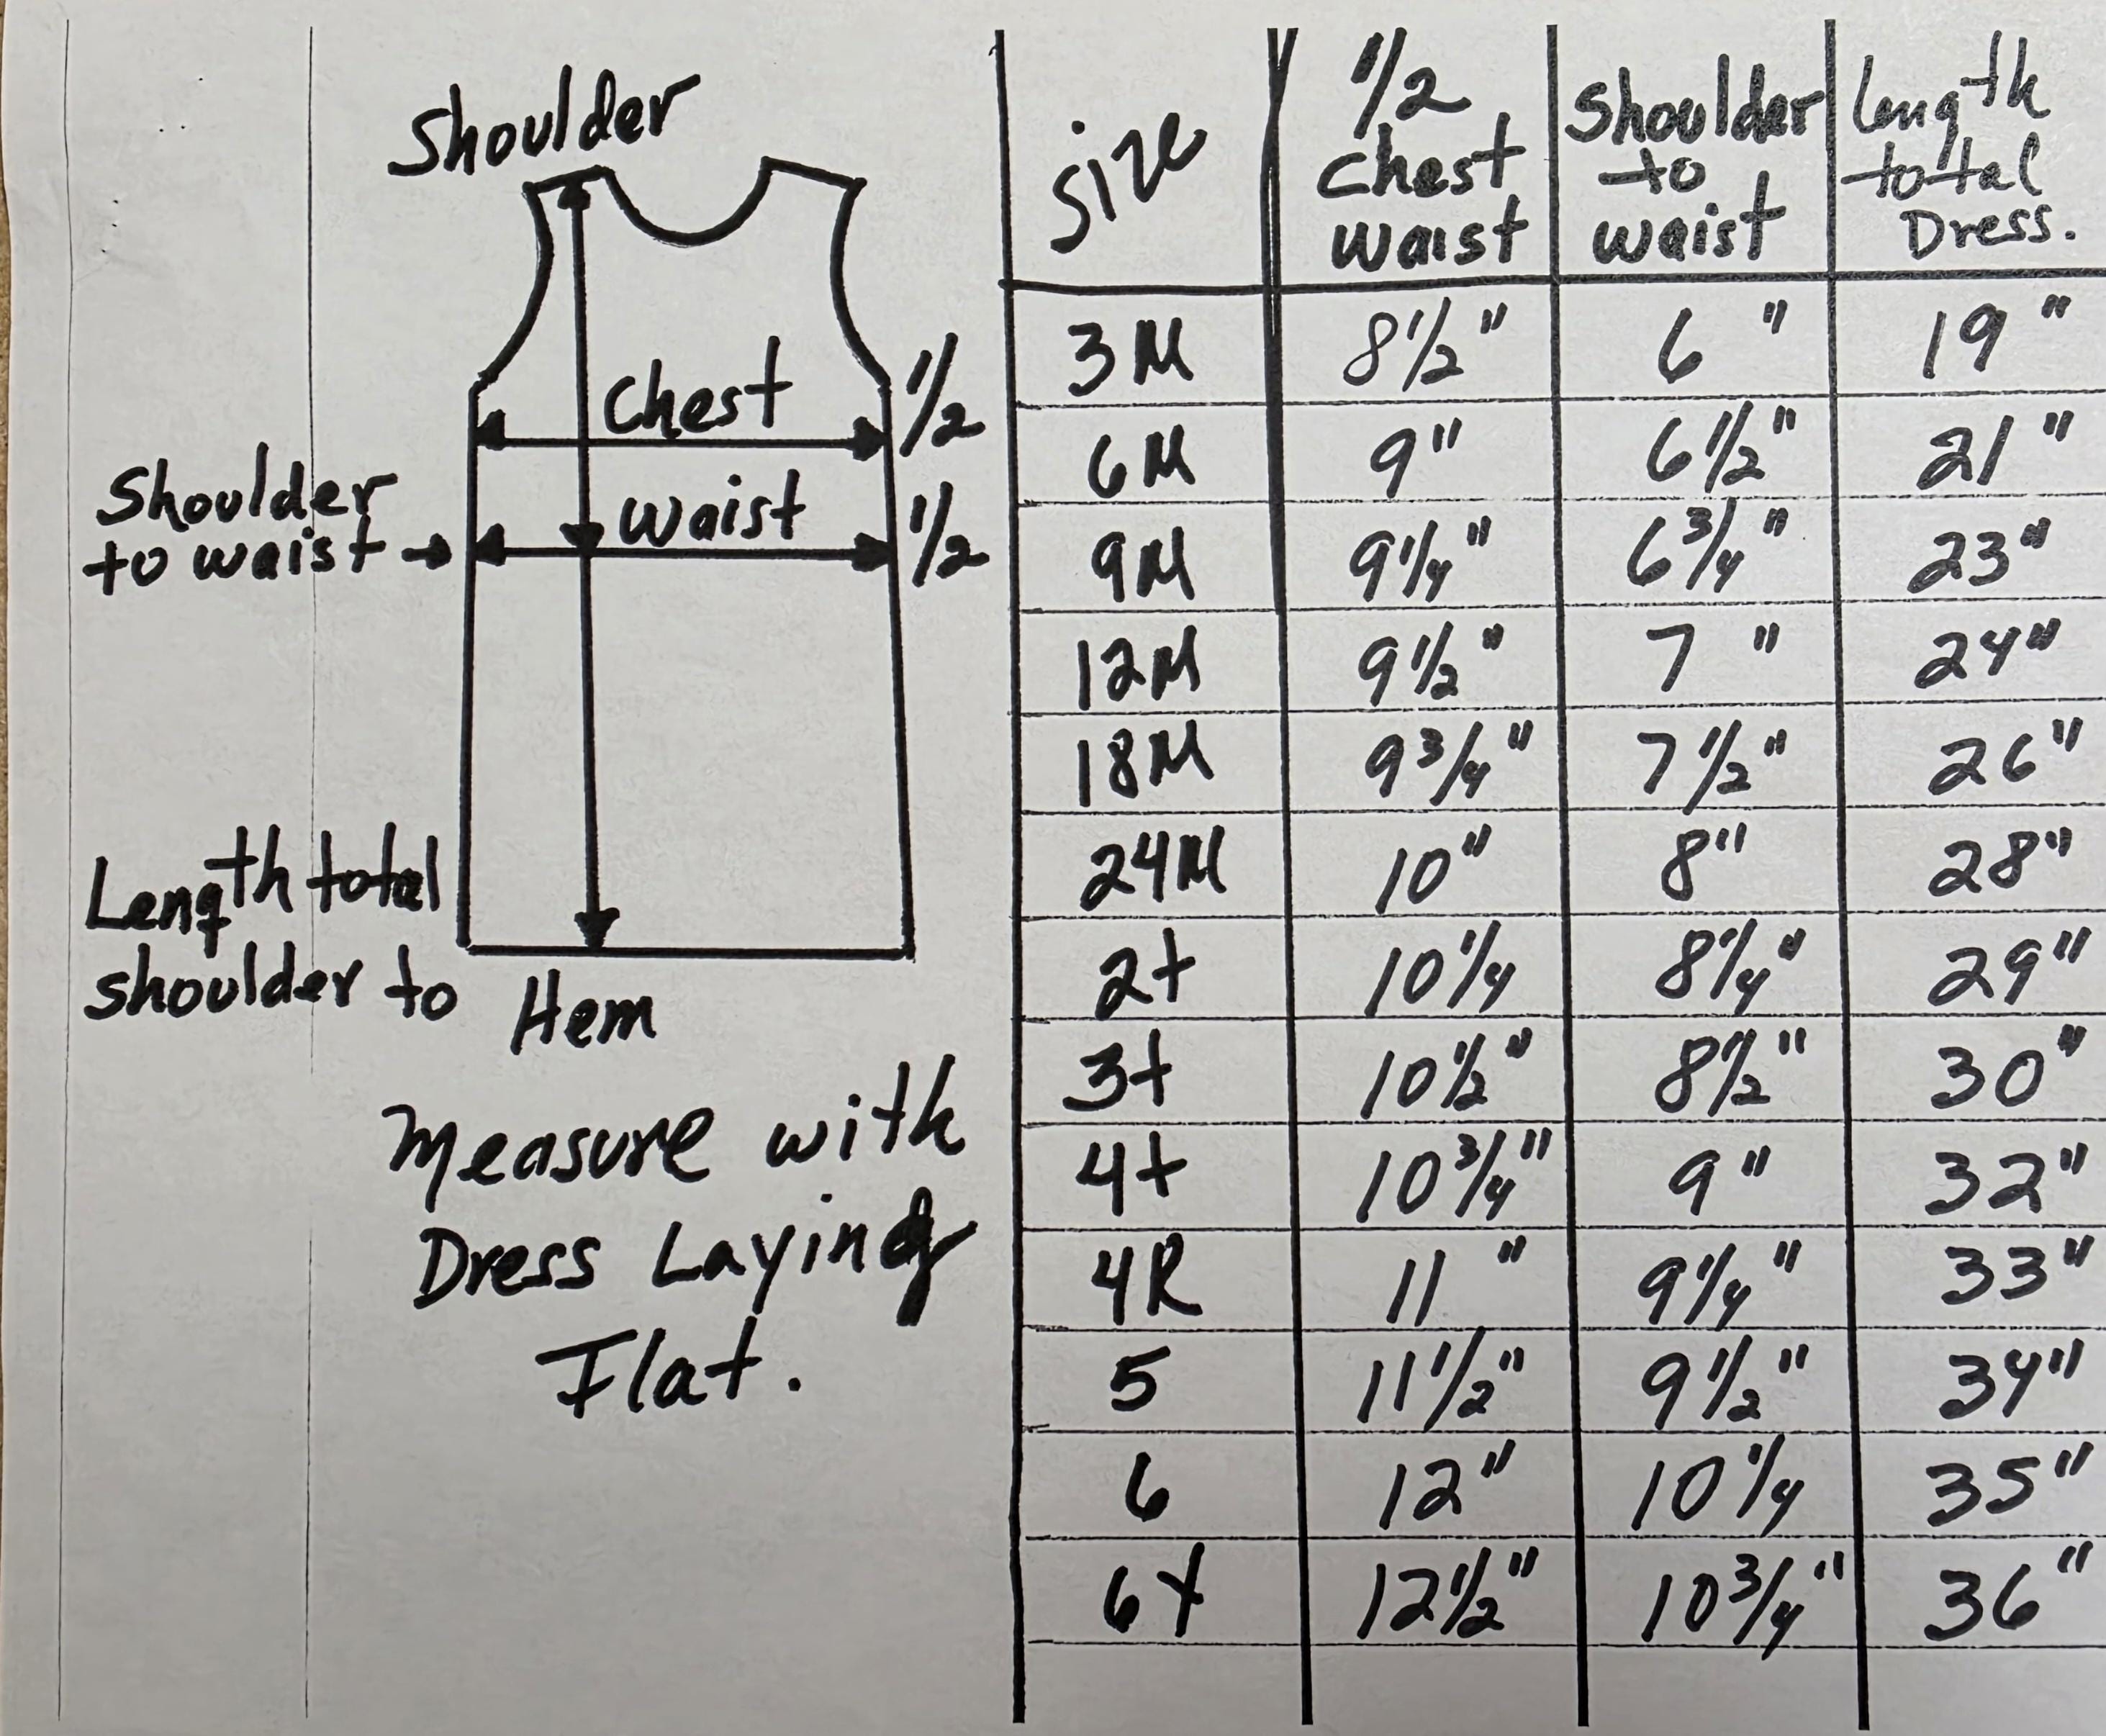 Shoulder
Chest 1/2
Waist 1/2
Shoulder
to waist →
Length total
shoulder to Hem
Measure with
Dress Laying
Flat.
Size 1/2 Chest waist Shoulder to waist Length total Dress.
3M 8 1/2" 6" 19"
6M 9" 6 1/2" 21"
9M 9 1/4" 6 3/4" 23"
12M 9 1/2" 7" 24"
18M 9 3/4" 7 1/2" 26"
24M 10" 8" 28"
2t 10 1/4 8 1/4" 29"
3t 10 1/2" 8 1/2" 30"
4t 10 3/4" 9" 32"
4R 11" 9 1/4" 33"
5 11 1/2" 9 1/2" 34"
6 12" 10 1/4 35"
6X 12 1/2" 10 3/4" 36"